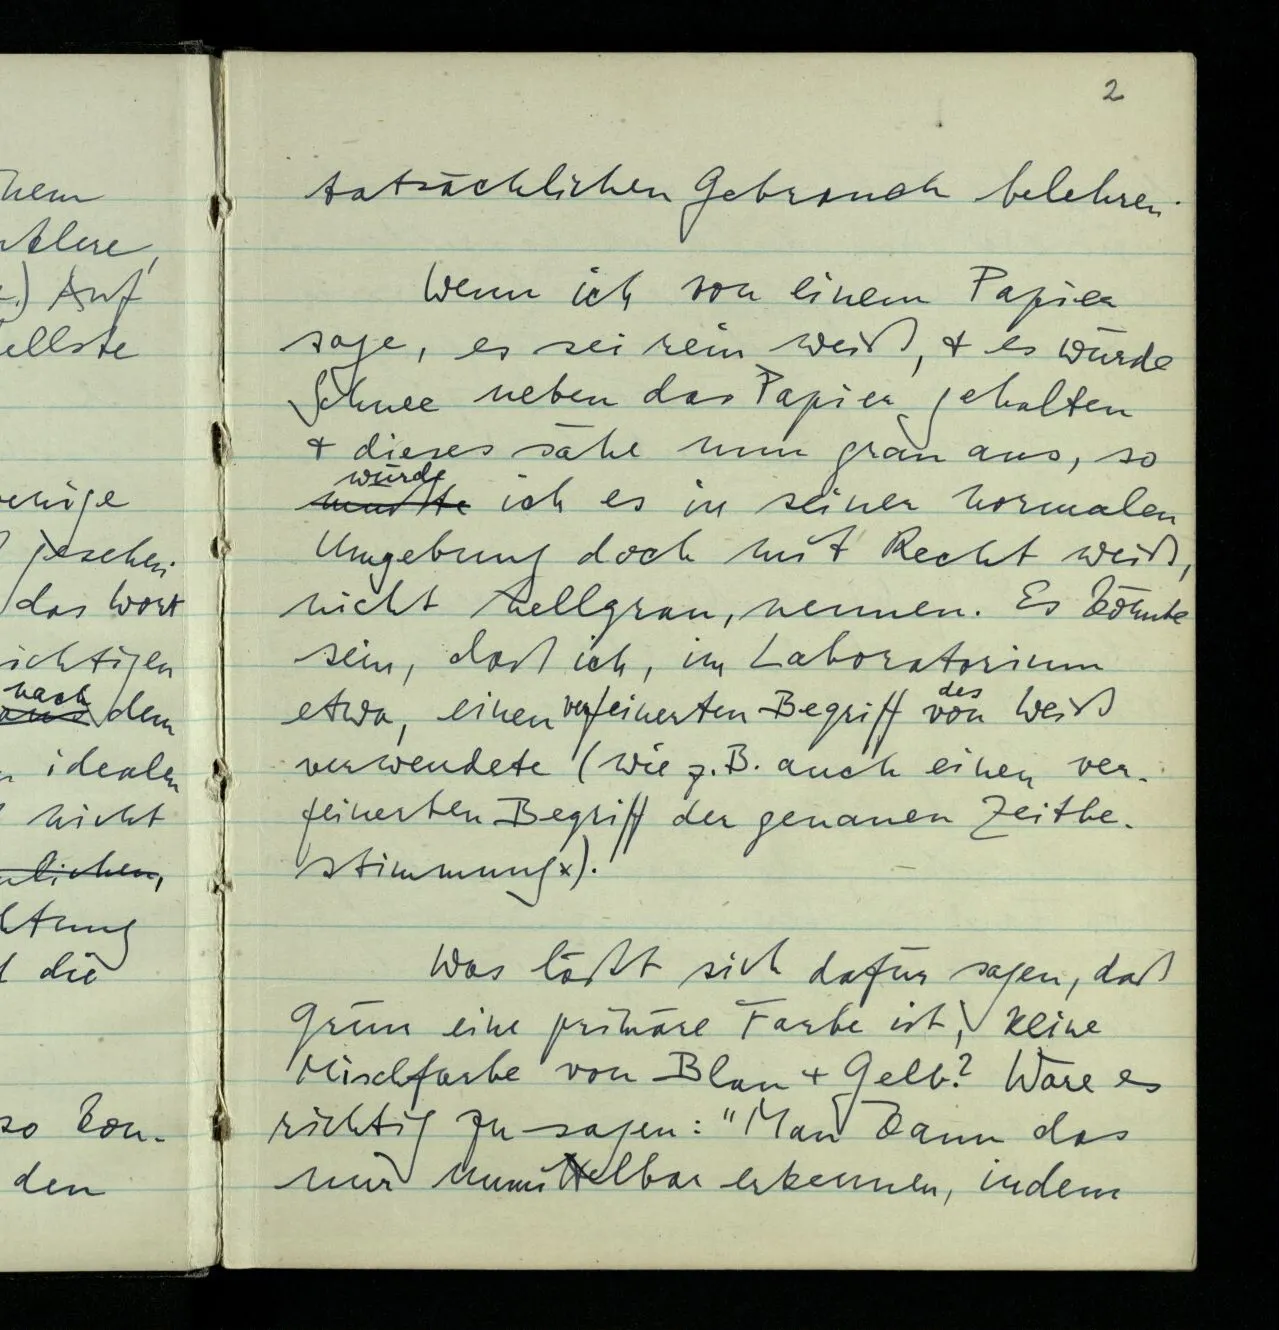 nem
ntlere,
.) Auf
ellste
wenige
gesehen
das Wort
ichtigen
nach
aus dem
idealen
nicht
nlichen,
htung
die
so kon-
den
2
tatsächlichen Gebrauch belehren.
Wenn ich von einem Papier
sage, es sei rein weiß, + es würde
Schnee neben das Papier gehalten
+ dieses sähe nun grau aus, so
würde
müßte ich es in seiner normalen
Umgebung doch mit Recht weiß,
nicht hellgrau, nennen. Es könnte
sein, daß ich, im Laboratorium
etwa, einen verfeinerten Begriff von des Weiß
verwendete (wie z.B. auch einen ver-
feinerten Begriff der genauen Zeitbe-
stimmung x).
Was läßt sich dafür sagen, daß
Grün eine primäre Farbe ist, keine
Mischfarbe von Blau + Gelb? Wäre es
richtig zu sagen: "Man kann das
nur unmittelbar erkennen, indem